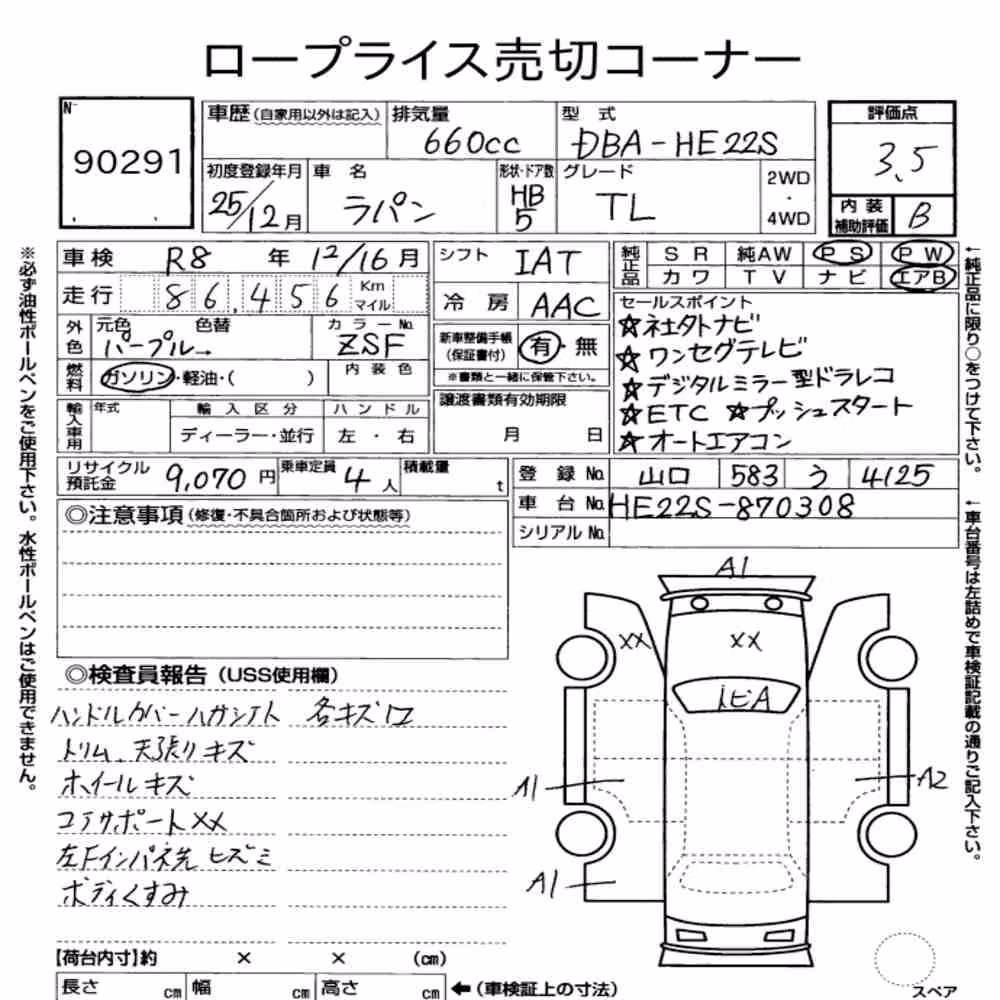 ロープライス売切コーナー
No
90291
車歴(自家用以外は記入)
排気量
660cc
型 式
DBA-HE22S
評価点
3.5
初度登録年月
25/12月
車 名
ラパン
形状・ドア数
HB
5
グレード
TL
2WD
・
4WD
内装
補助評価
B
車検 R8 年 12/16月
シフト IAT
純正品
SR 純AW PS PW
カワ TV ナビ エアB
走行 86,456 Km
マイル
冷房 AAC
セールスポイント
☆社外ナビ
☆ワンセグテレビ
☆デジタルミラー型ドラレコ
☆ETC ☆プッシュスタート
☆オートエアコン
外色
元色 色替
パープル→
カラーNo.
ZSF
新車整備手帳
(保証書付)
有・無
※書類と一緒に保管下さい。
燃料
ガソリン・軽油・( )
内装色
譲渡書類有効期限
月 日
輸入車用
年式
輸入区分
ディーラー・並行
ハンドル
左・右
リサイクル
預託金
9,070 円
乗車定員
4 人
積載量
t
登録No. 山口 583 う 4125
車台No. HE22S-870308
シリアルNo.
◎注意事項(修復・不具合箇所および状態等)
◎検査員報告(USS使用欄)
ハンドルカバー
各キズ
トリム、天張りキズ
ホイールキズ
コアサポートXX
左Fインパネ先 ヒズミ
ボディくすみ
A1
XX
XX
1EA
A1
A2
A1
【荷台内寸】約 × × (cm)
長さ cm 幅 cm 高さ cm
←(車検証上の寸法)
スペア
※必ず油性ボールペンをご使用下さい。水性ボールペンはご使用できません。
←純正品に限り○をつけて下さい。
←車台番号は左詰めで車検証記載の通りご記入下さい。